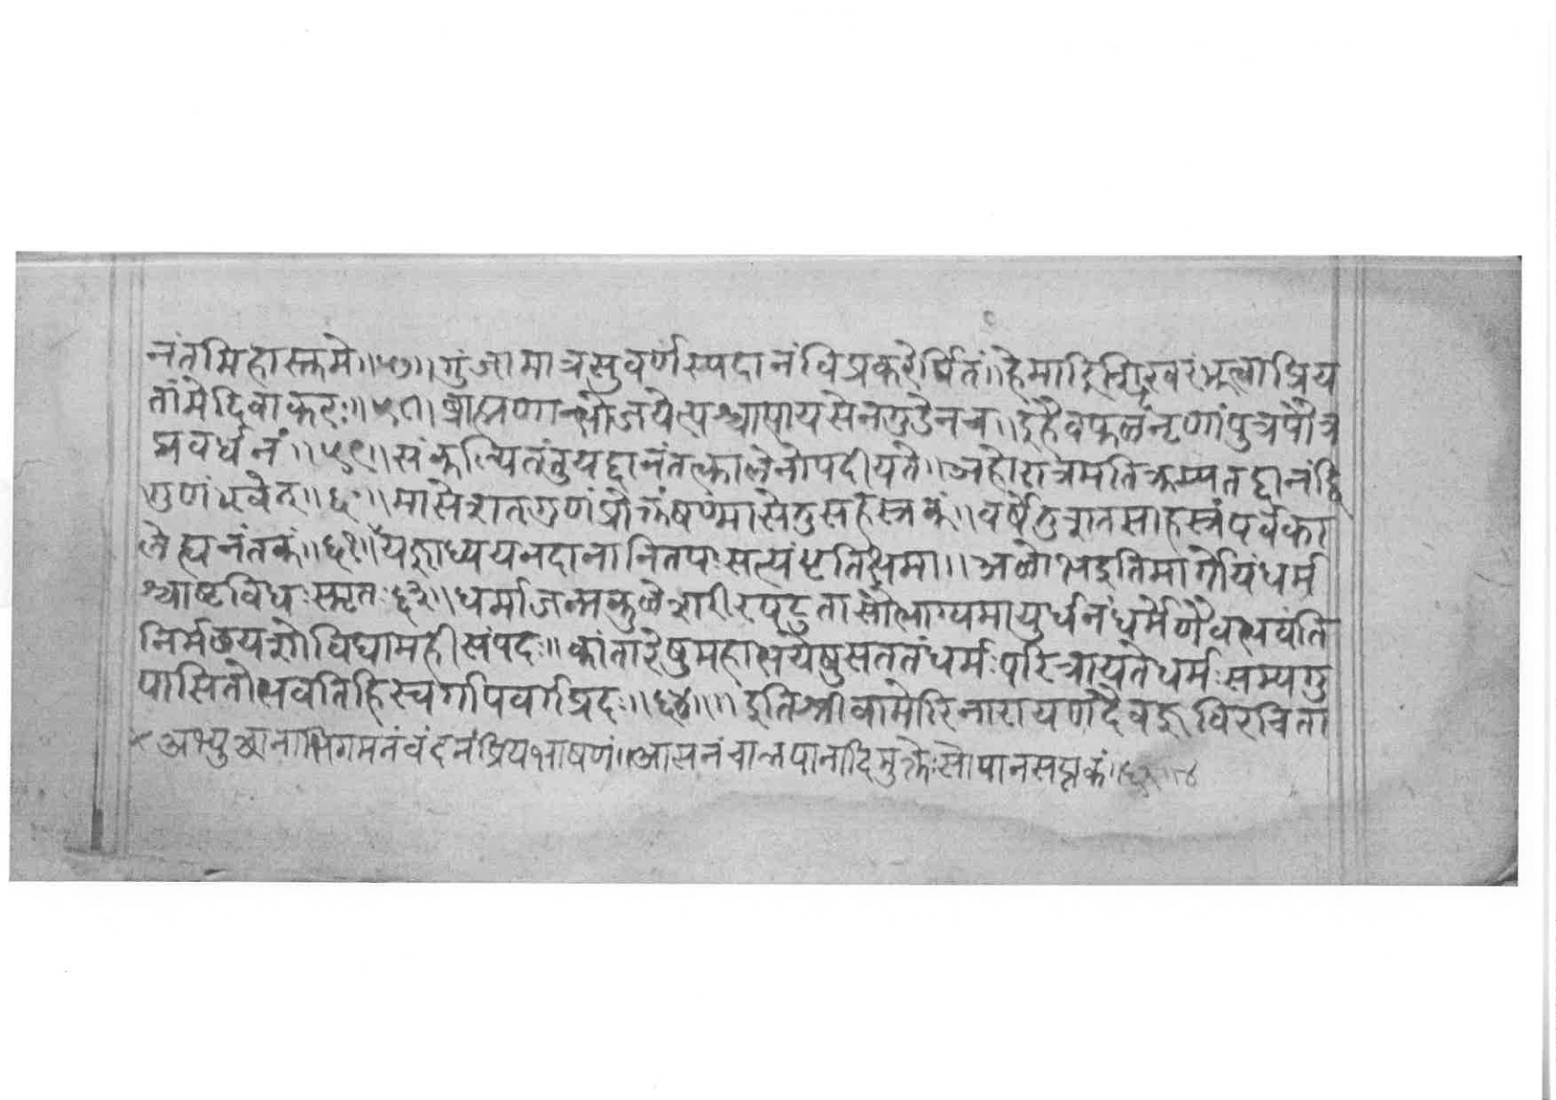 नंतमिहास्तमे॥५७॥गुंजामात्रसुवर्णस्यदानंविप्रकरेर्पितं॥हेमाद्रिशिखरंभूत्वाप्रिय
तांमेदिवाकरः॥५८॥ब्राह्मणान्भोजयेत्पश्चात्पायसेनगुडेनच॥इहैवफलंनृणांपुत्रपौत्र
प्रवर्धनं॥५९॥संकल्पितंतुयद्दानंतत्कालेनोपदीयते॥अहोरात्रमतिक्रम्यतद्दानंद्वि
गुणंभवेत्॥६०॥मासेशतगुणंप्रोक्तंषण्मासेतुसहस्त्रकं॥वर्षेतुशतसाहस्त्रंपर्वका
लेह्यनंतकं॥६१॥यज्ञाध्ययनदानानितपःसत्यंधृतिक्षमा॥अलोभइतिमार्गोयंधर्म
श्चाष्टविधःस्मृतः६२॥धर्माजन्मकुलेशरीरपटुतासौभाग्यमायुर्धनंधर्मेणैवभवंति
निर्मळयशोविद्यामहीसंपदः॥कांतारेषुमहाभयेषुसततंधर्मःपरित्रायतेधर्मःसम्यगु
पासितोभवतिहिस्वर्गापवर्गप्रदः॥६४॥॥इतिश्रीवामोरिनारायणदैवज्ञविरचिता
अभ्युत्थानाभिगमनंवंदनंप्रियभाषणं॥आसनंचान्नपानादिमुक्तेःसोपानसप्तकं॥